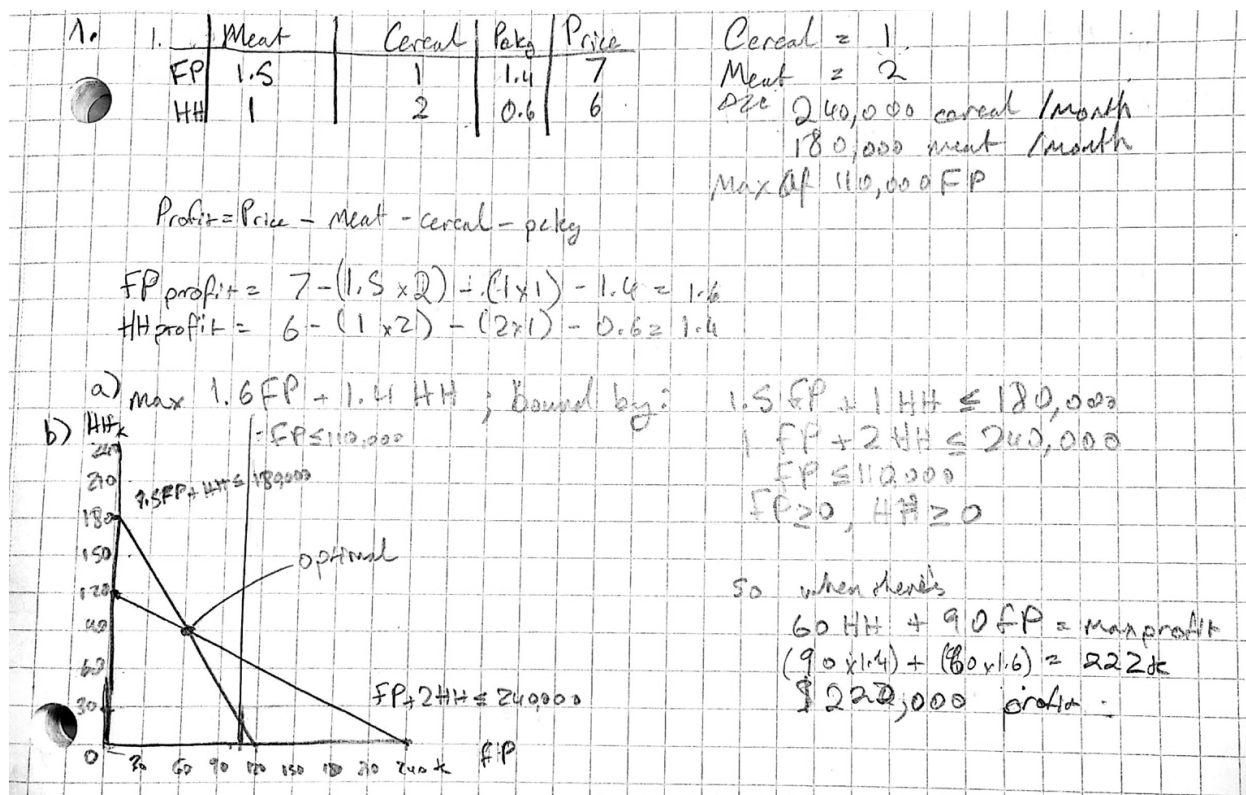 1. 1. Meat Cereal Pakg Price
FP 1.5 1 1.4 7
HH 1 2 0.6 6
Cereal = 1
Meat = 2
240,000 cereal /month
180,000 meat /month
Max of 110,000 FP
Profit = Price - meat - cereal - pckg
FP profit = 7 - (1.5 x 2) - (1x1) - 1.4 = 1.6
HH profit = 6 - (1 x 2) - (2x1) - 0.6 = 1.4
a) max 1.6 FP + 1.4 HH ; bound by: 1.5 FP + 1 HH ≤ 180,000
1 FP + 2 HH ≤ 240,000
FP ≤ 110,000
FP ≥ 0, HH ≥ 0
b) HH k
240
210
180
150
120
90
60
30
0 30 60 90 120 150 180 210 240 k FP
FP ≤ 110,000
1.5FP + HH ≤ 180,000
optimal
FP + 2HH ≤ 240,000
so when there's
60 HH + 90 FP = max profit
(90 x 1.4) + (60 x 1.6) = 222k
$ 222,000 profit.